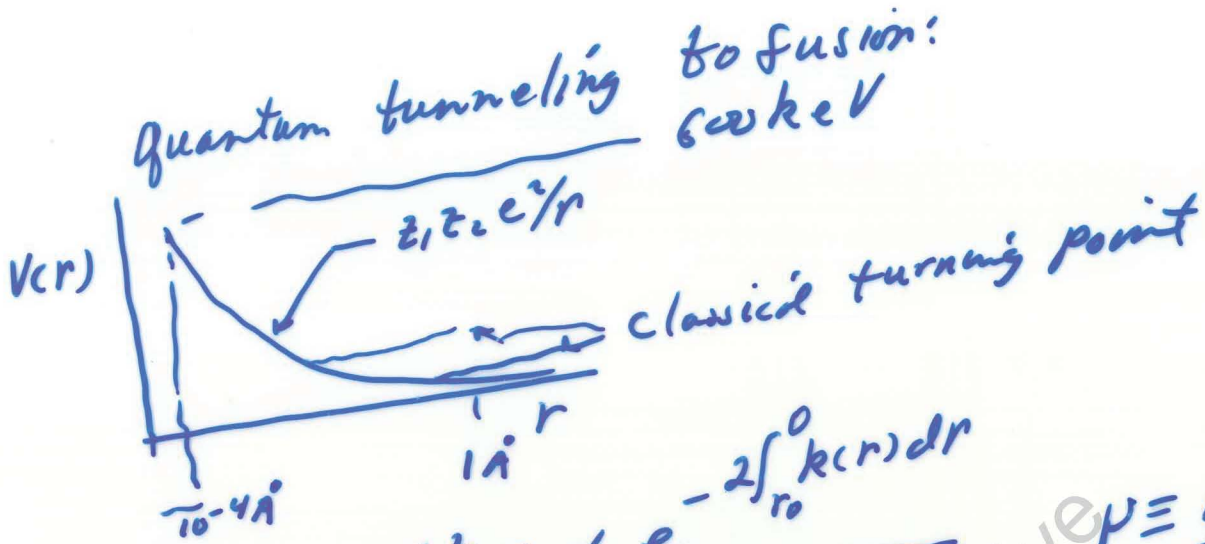 Quantum tunneling to fusion:
600 keV
V(r)
z₁z₂e²/r
classical turning point
r
1 Å
10⁻⁴Å
-2∫_{r₀}^{0} k(r)dr
μ ≡